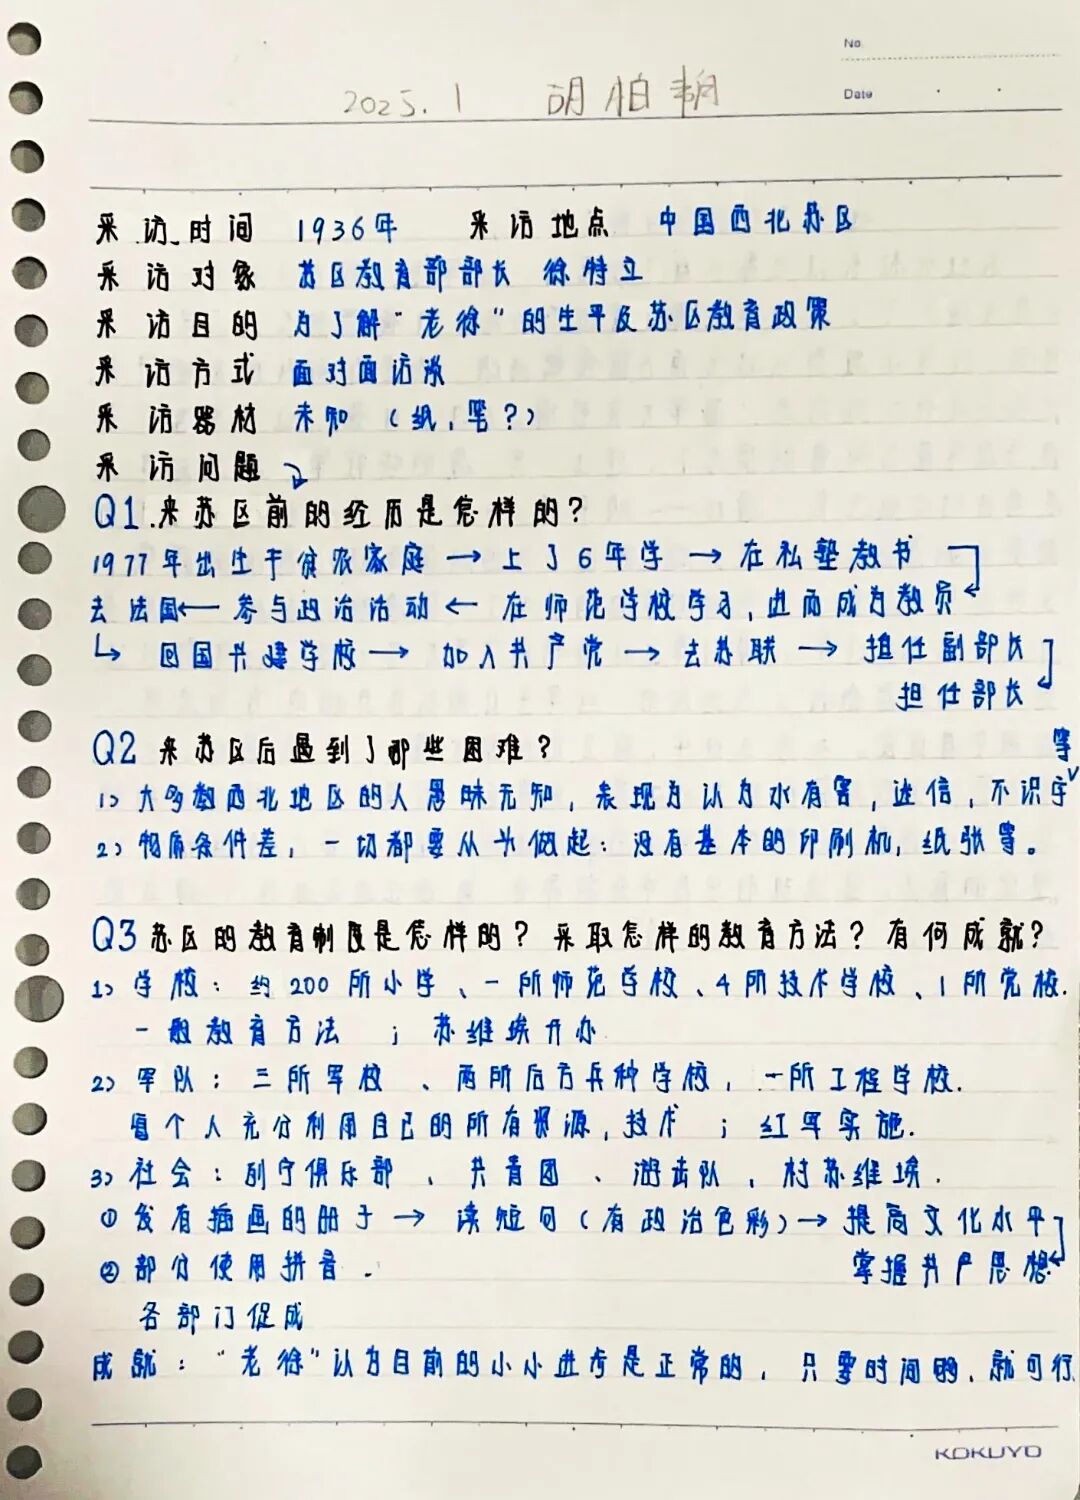 No.
2025.1 胡怕韩
Date
采访时间 1936年 采访地点 中国西北苏区
采访对象 苏区教育部部长 徐特立
采访目的 为了解“老徐”的生平及苏区教育政策
采访方式 面对面访谈
采访器材 未知（纸，笔？）
采访问题
Q1.来苏区前的经历是怎样的？
1977年出生于贫农家庭→上了6年学→在私塾教书
去法国←参与政治活动←在师范学校学习，进而成为教员
↳回国共建学校→加入共产党→去苏联→担任副部长
担任部长
Q2 来苏区后遇到了那些困难？
等
1）大多数西北地区的人愚昧无知，表现为认为水有害，迷信，不识字
2）物质条件差，一切都要从头做起：没有基本的印刷机，纸张等。
Q3 苏区的教育制度是怎样的？采取怎样的教育方法？有何成就？
1）学校：约200所小学、一所师范学校、4所技术学校、1所党校.
一般教育方法 ；苏维埃开办
2）军队：三所军校、两所后方兵种学校，一所工程学校.
每个人充分利用自己的所有资源，技术 ；红军实施.
3）社会：列宁俱乐部、共青团、游击队，村苏维埃.
①发有插画的册子→读短句（有政治色彩）→提高文化水平
②部分使用拼音. 掌握共产思想
各部门促成
成就：“老徐”认为目前的小小进步是正常的，只要时间够，就可行.
KOKUYO